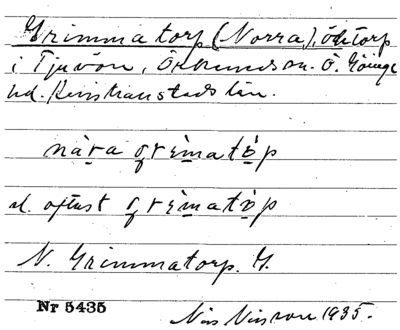 Grimmatorp (Norra), ödetorp
i Tjuvön, Örkeneds sn. Ö. Göinge
hd. Kristianstads län.
nàra grìmatòp
el. oftast grìmatòp
N. Grimmatorp. G.
Nr 5435
Nils Nilsson 1935.